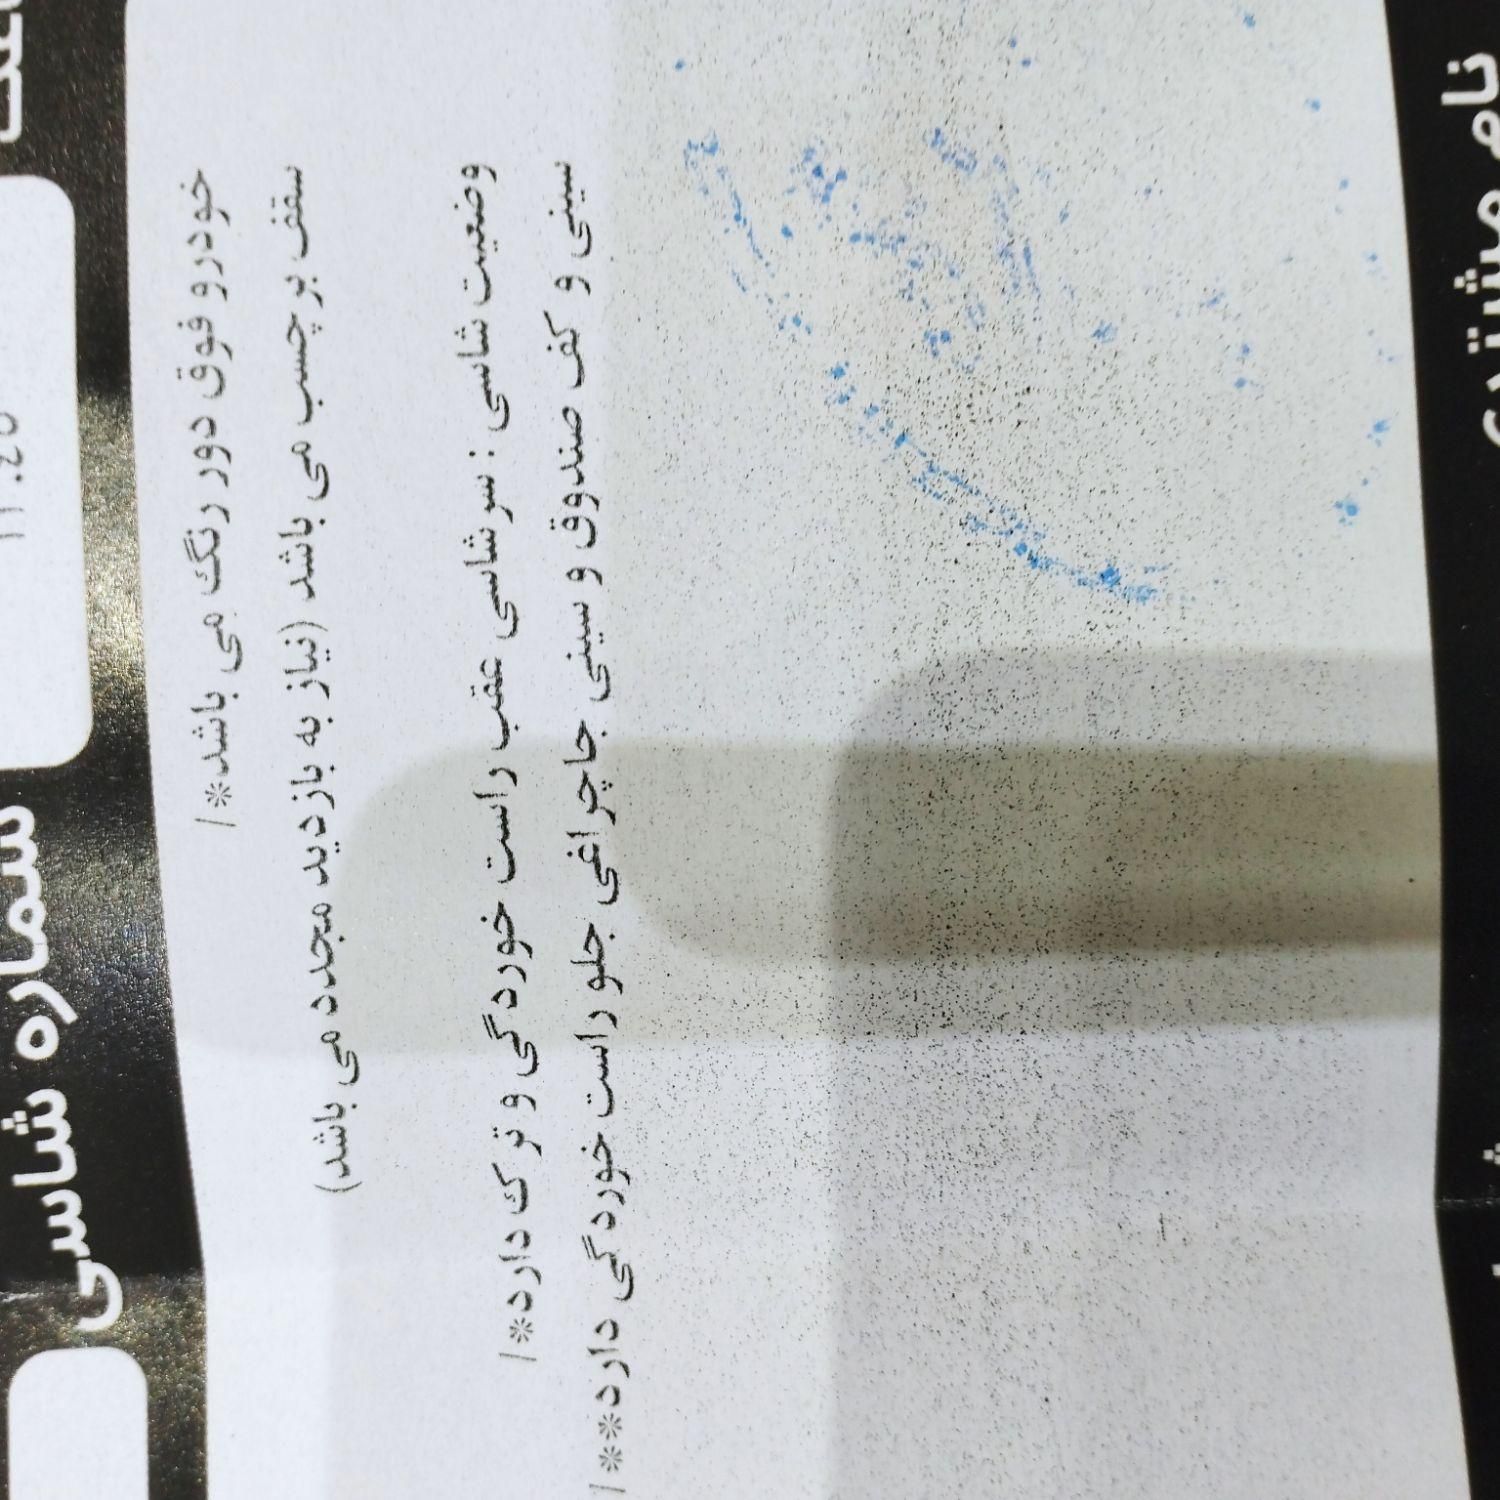 شماره شاسی
خودرو فوق دور رنگ می باشد*/
سقف بر چسب می باشد (نیاز به بازدید مجدد می باشد)
وضعیت شاسی : سر شاسی عقب راست خوردگی و ترک دارد*/
سینی و کف صندوق و سینی جاچراغی جلو راست خوردگی دارد**/
نام مشتری